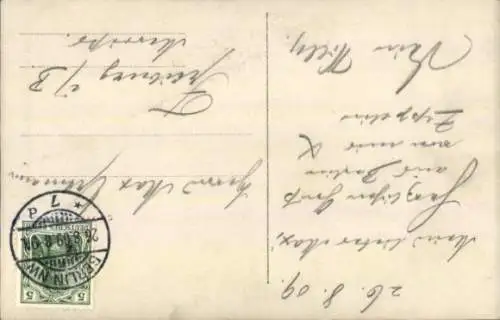 26. 8. 09.
Mein lieber Max,
Herzlichen Gruß
aus Berlin
von mir &
Zeppelin
Dein Willy.
Herrn Max
Freiburg i/B
BERLIN NW
7
26.8.09
5
5